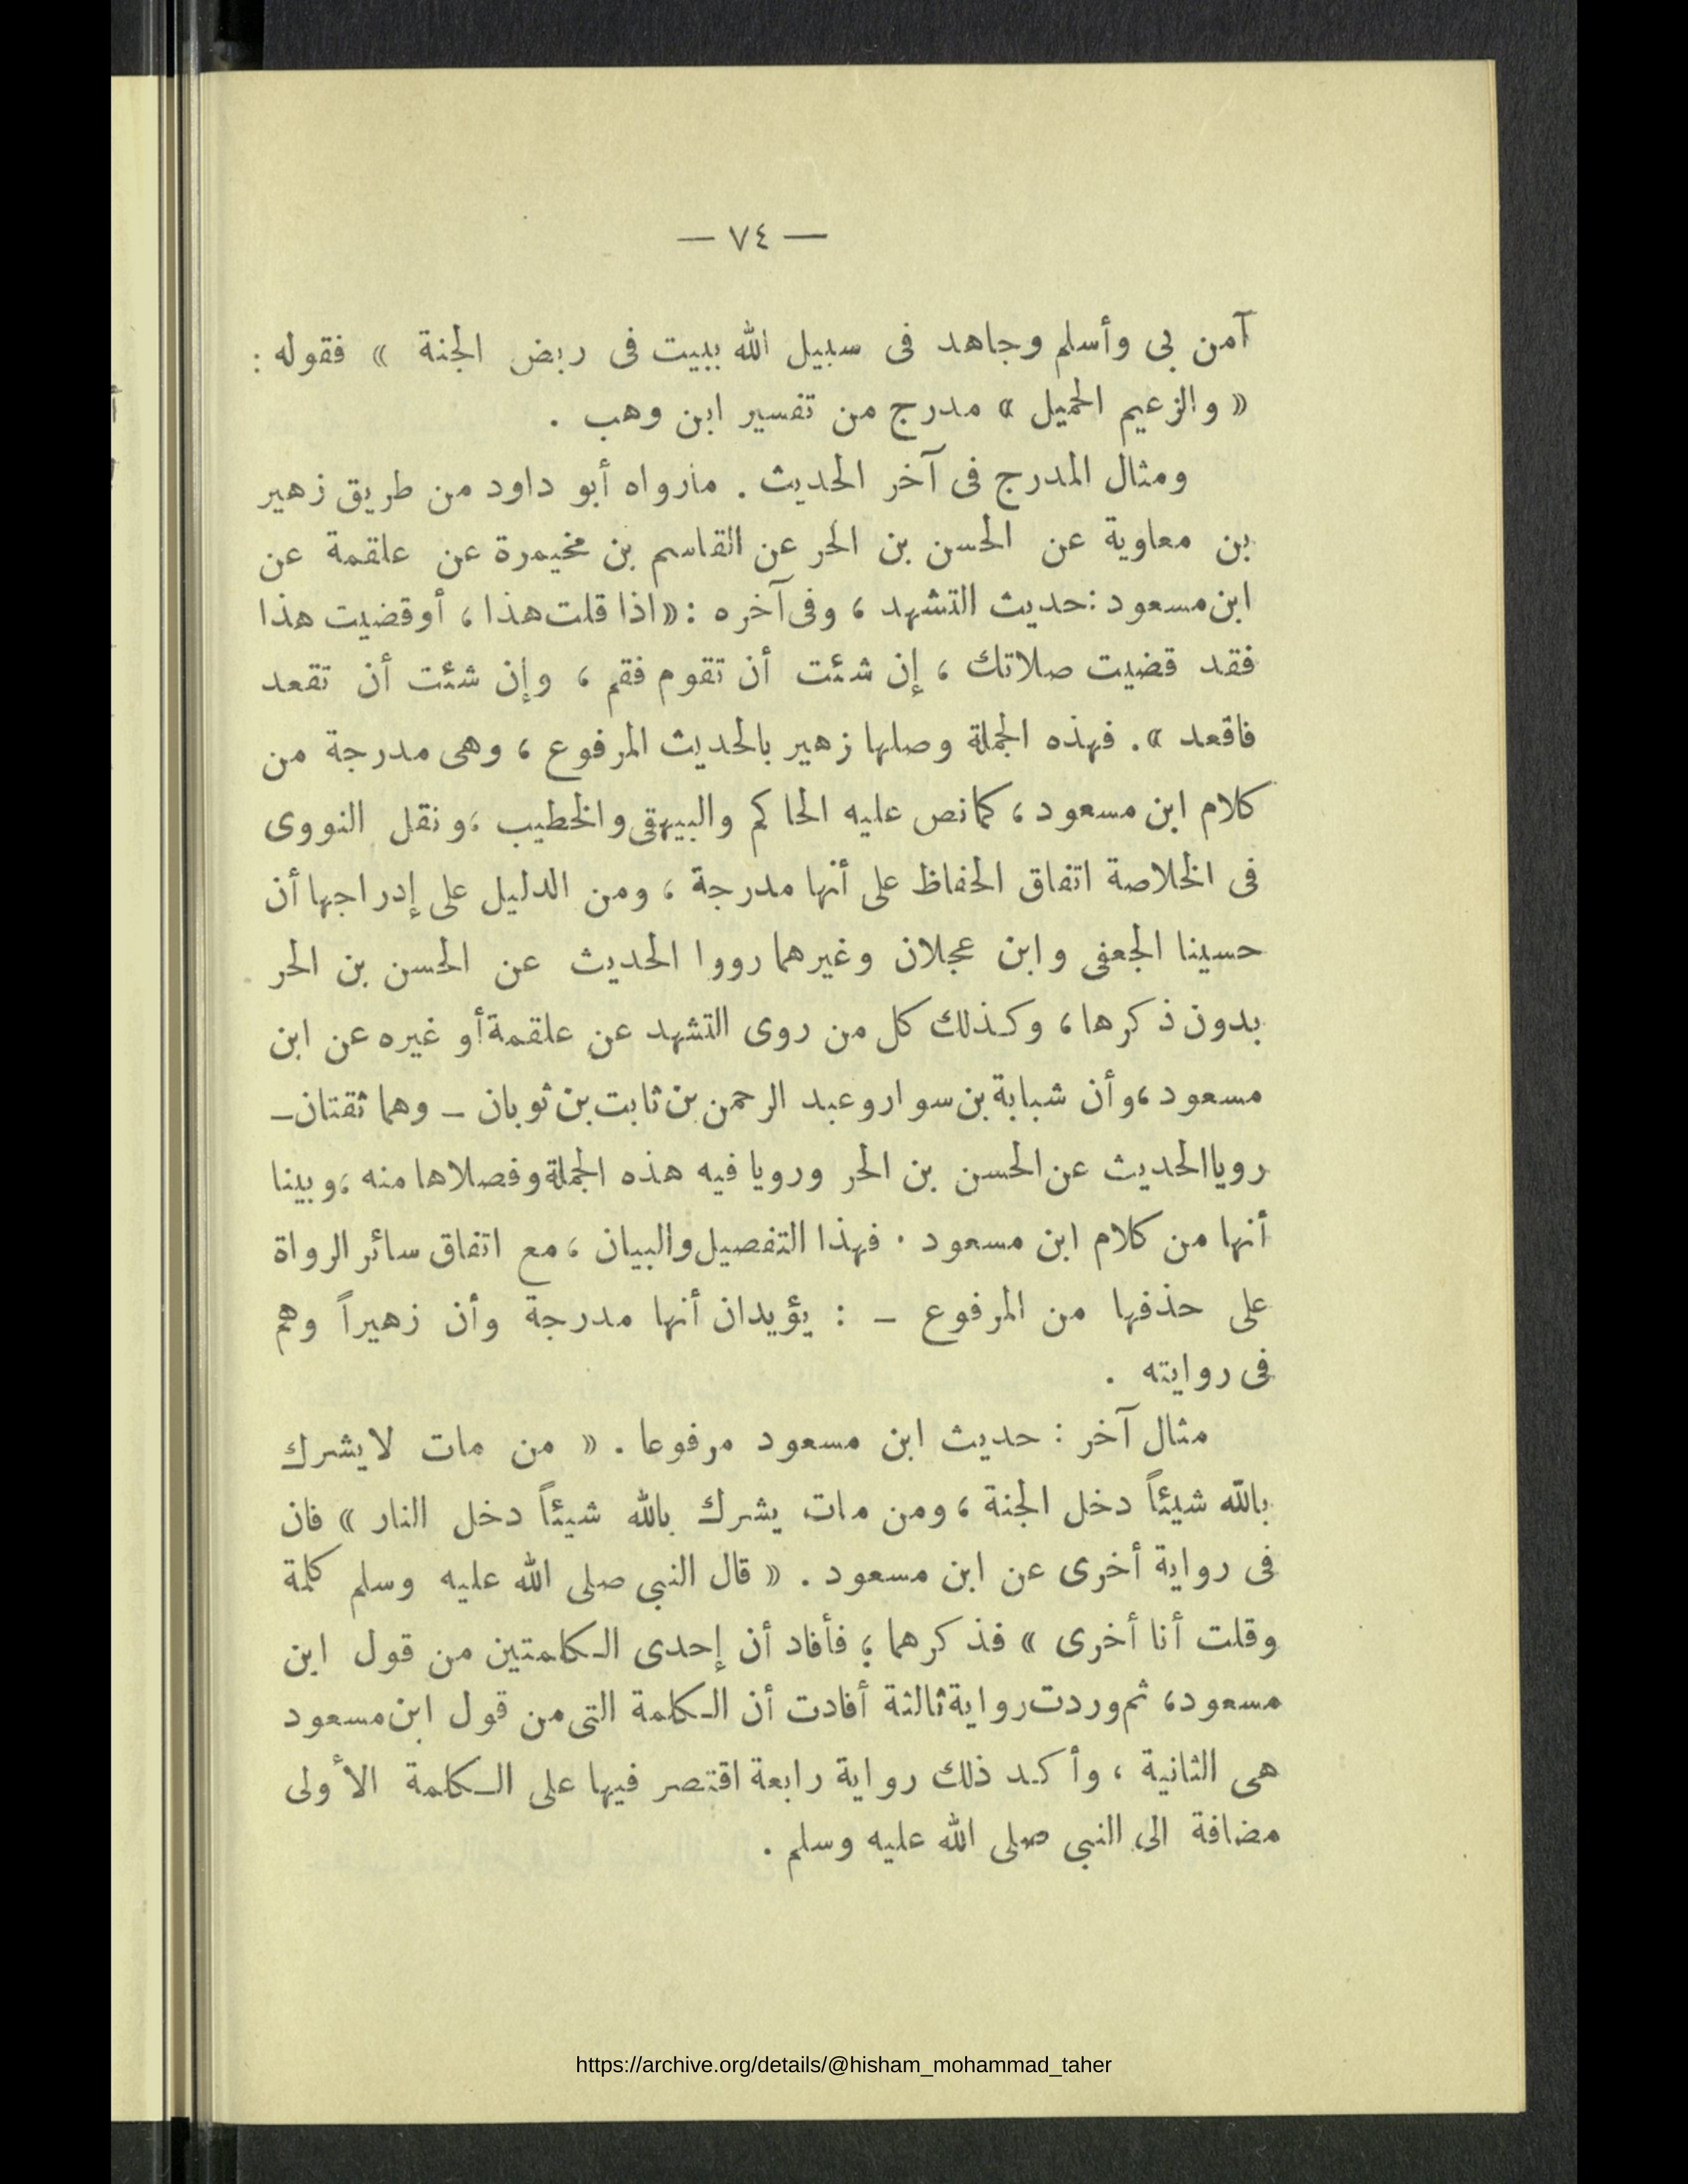 — ٧٤ —
آمن بى وأسلم وجاهد فى سبيل الله ببيت فى ربض الجنة » فقوله :
« والزعيم الحميل » مدرج من تفسير ابن وهب .
ومثال المدرج فى آخر الحديث . مارواه أبو داود من طريق زهير
بن معاوية عن الحسن بن الحر عن القاسم بن مخيمرة عن علقمة عن
ابن مسعود : حديث التشهد ، وفى آخره : « اذا قلت هذا ، أو قضيت هذا
فقد قضيت صلاتك ، إن شئت أن تقوم فقم ، وإن شئت أن تقعد
فاقعد » . فهذه الجملة وصلها زهير بالحديث المرفوع ، وهى مدرجة من
كلام ابن مسعود ، كما نص عليه الحاكم والبيهقى والخطيب ، ونقل النووى
فى الخلاصة اتفاق الحفاظ على أنها مدرجة ، ومن الدليل على إدراجها أن
حسينا الجعفى وابن عجلان وغيرهما رووا الحديث عن الحسن بن الحر
بدون ذكرها ، وكذلك كل من روى التشهد عن علقمة أو غيره عن ابن
مسعود ، وأن شبابة بن سوار وعبد الرحمن بن ثابت بن ثوبان ـ وهما ثقتان ـ
رويا الحديث عن الحسن بن الحر ورويا فيه هذه الجملة وفصلاها منه ، وبينا
أنها من كلام ابن مسعود . فهذا التفصيل والبيان ، مع اتفاق سائر الرواة
على حذفها من المرفوع ـ : يؤيدان أنها مدرجة وأن زهيراً وهم
فى روايته .
مثال آخر : حديث ابن مسعود مرفوعا . « من مات لايشرك
بالله شيئاً دخل الجنة ، ومن مات يشرك بالله شيئاً دخل النار » فان
فى رواية أخرى عن ابن مسعود . « قال النبى صلى الله عليه وسلم كلمة
وقلت أنا أخرى » فذكرهما ؛ فأفاد أن إحدى الكلمتين من قول ابن
مسعود ، ثم وردت رواية ثالثة أفادت أن الكلمة التى من قول ابن مسعود
هى الثانية ، وأكد ذلك رواية رابعة اقتصر فيها على الكلمة الأولى
مضافة الى النبى صلى الله عليه وسلم .
https://archive.org/details/@hisham_mohammad_taher